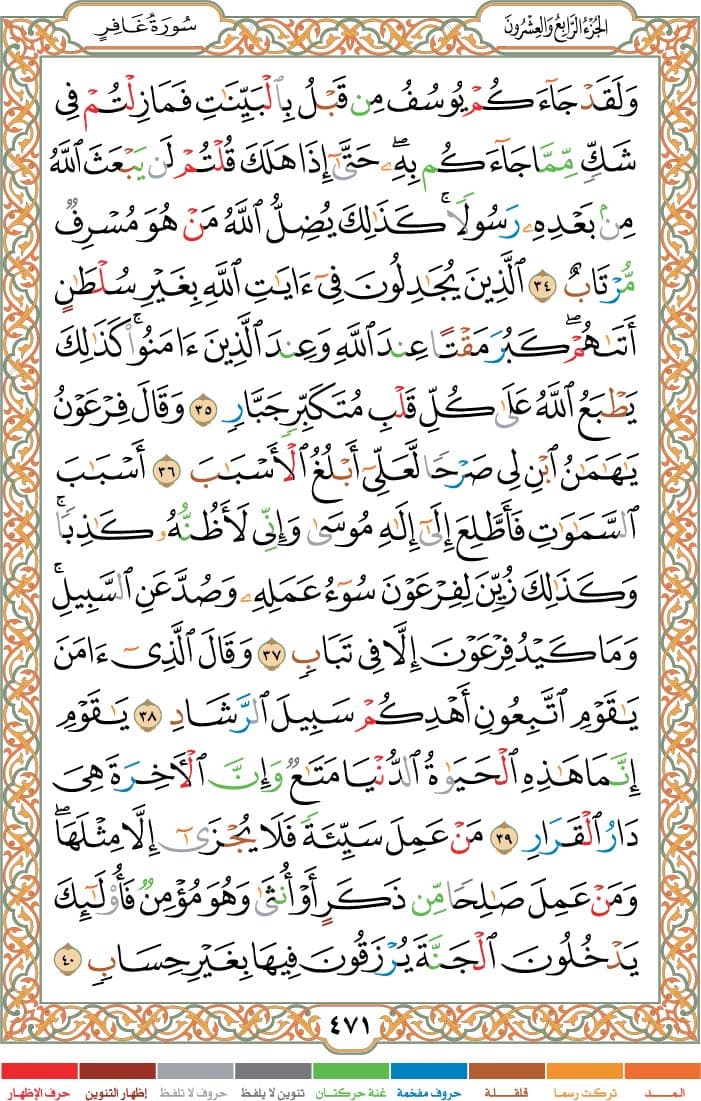 الجُزْءُ الرَّابِعُ وَالعِشْرُونَ
سُورَةُ غَافِرٍ
وَلَقَدۡ جَآءَكُمۡ يُوسُفُ مِن قَبۡلُ بِٱلۡبَيِّنَٰتِ فَمَا زِلۡتُمۡ فِي
شَكّٖ مِّمَّا جَآءَكُم بِهِۦۖ حَتَّىٰٓ إِذَا هَلَكَ قُلۡتُمۡ لَن يَبۡعَثَ ٱللَّهُ
مِنۢ بَعۡدِهِۦ رَسُولٗاۚ كَذَٰلِكَ يُضِلُّ ٱللَّهُ مَنۡ هُوَ مُسۡرِفٞ
مُّرۡتَابٌ ٣٤ ٱلَّذِينَ يُجَٰدِلُونَ فِيٓ ءَايَٰتِ ٱللَّهِ بِغَيۡرِ سُلۡطَٰنٍ
أَتَىٰهُمۡۖ كَبُرَ مَقۡتًا عِندَ ٱللَّهِ وَعِندَ ٱلَّذِينَ ءَامَنُواْۚ كَذَٰلِكَ
يَطۡبَعُ ٱللَّهُ عَلَىٰ كُلِّ قَلۡبِ مُتَكَبِّرٖ جَبَّارٖ ٣٥ وَقَالَ فِرۡعَوۡنُ
يَٰهَٰمَٰنُ ٱبۡنِ لِي صَرۡحٗا لَّعَلِّيٓ أَبۡلُغُ ٱلۡأَسۡبَٰبَ ٣٦ أَسۡبَٰبَ
ٱلسَّمَٰوَٰتِ فَأَطَّلِعَ إِلَىٰٓ إِلَٰهِ مُوسَىٰ وَإِنِّي لَأَظُنُّهُۥ كَٰذِبٗاۚ
وَكَذَٰلِكَ زُيِّنَ لِفِرۡعَوۡنَ سُوٓءُ عَمَلِهِۦ وَصُدَّ عَنِ ٱلسَّبِيلِۚ
وَمَا كَيۡدُ فِرۡعَوۡنَ إِلَّا فِي تَبَابٖ ٣٧ وَقَالَ ٱلَّذِيٓ ءَامَنَ
يَٰقَوۡمِ ٱتَّبِعُونِ أَهۡدِكُمۡ سَبِيلَ ٱلرَّشَادِ ٣٨ يَٰقَوۡمِ
إِنَّمَا هَٰذِهِ ٱلۡحَيَوٰةُ ٱلدُّنۡيَا مَتَٰعٞ وَإِنَّ ٱلۡأٓخِرَةَ هِيَ
دَارُ ٱلۡقَرَارِ ٣٩ مَنۡ عَمِلَ سَيِّئَةٗ فَلَا يُجۡزَىٰٓ إِلَّا مِثۡلَهَاۖ
وَمَنۡ عَمِلَ صَٰلِحٗا مِّن ذَكَرٍ أَوۡ أُنثَىٰ وَهُوَ مُؤۡمِنٞ فَأُوْلَٰٓئِكَ
يَدۡخُلُونَ ٱلۡجَنَّةَ يُرۡزَقُونَ فِيهَا بِغَيۡرِ حِسَابٖ ٤٠
٤٧١
المـــد
تركت رسما
قلقـــلة
حروف مفخمة
غنة حركتان
تنوين لا يلفظ
حروف لا تلفظ
إظهار التنوين
حرف الإظهار